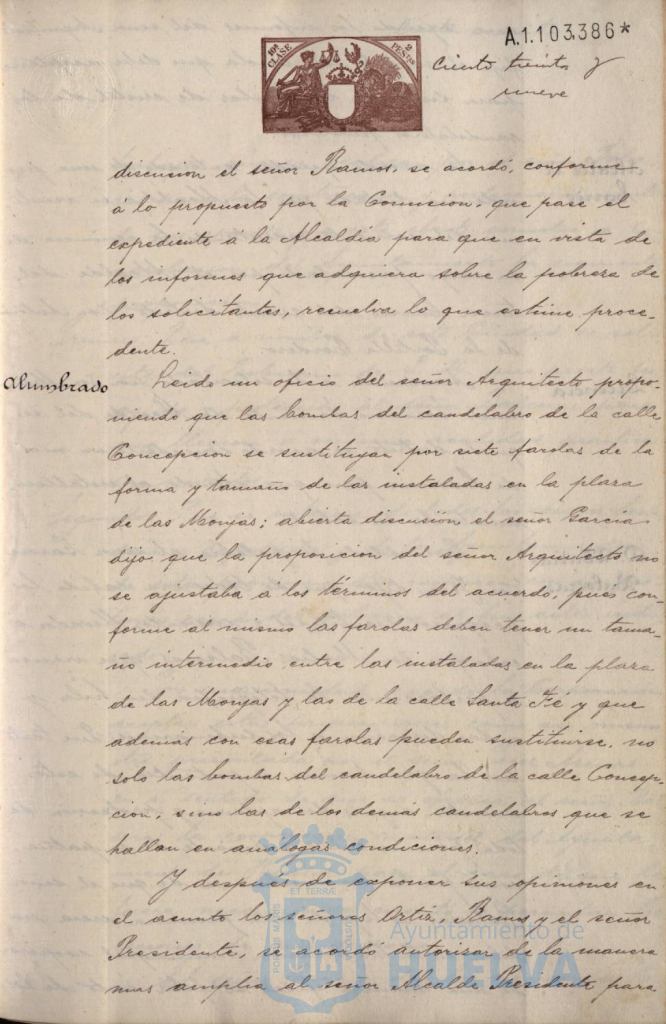 A.1.103.386*
10ª CLASE
2 PESETAS
Ciento treinta y
nueve
discusion el señor Ramos, se acordó, conforme
á lo propuesto por la Comision, que pase el
expediente á la Alcaldia para que en vista de
los informes que adquiera sobre la pobreza de
los solicitantes, resuelva lo que estime proce-
dente.
Alumbrado
Leido un oficio del señor Arquitecto propo-
niendo que las bombas del candelabro de la calle
Concepcion se sustituyan por siete farolas de la
forma y tamaño de las instaladas en la plaza
de las Monjas; abierta discusion el señor Garcia
dijo que la proposicion del señor Arquitecto no
se ajustaba á los términos del acuerdo, pues con-
forme al mismo las farolas deben tener un tama-
ño intermedio entre las instaladas en la plaza
de las Monjas y las de la calle Santa Fé y que
además con esas farolas pueden sustituirse, no
solo las bombas del candelabro de la calle Concep-
cion, sino las de los demás candelabros que se
hallan en análogas condiciones.
Y después de exponer sus opiniones en
el asunto los señores Ortiz, Ramos y el señor
Presidente, se acordó autorizar de la manera
mas amplia al señor Alcalde Presidente para
PORTUS MARIS ET TERRAE CUSTODIA
Ayuntamiento de
HUELVA